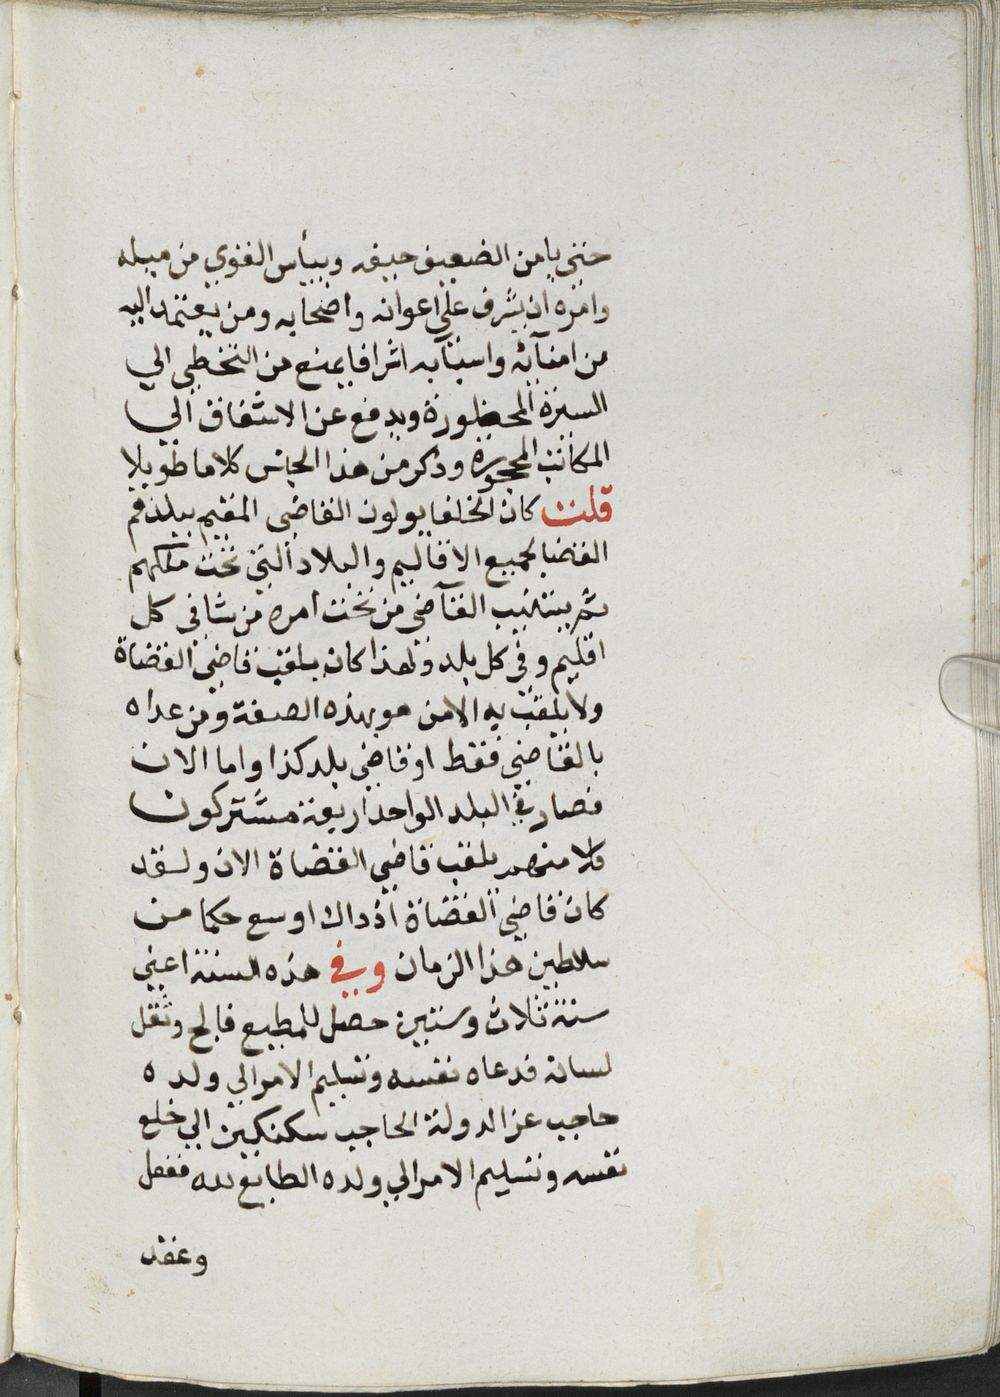 حتى يامن الضعيف حيفه وييأس القوي من ميله
وامره ان يشرف على اعوانه واصحابه ومن يعتمد اليه
من امنآئه واسبابه اشرافا يمنع من التخطي الي
السيرة المحظورة ويدفع عن الاشفاق الي
المكاتب المحجورة وذكر من هذا الجانس كلاما طويلا
قلت كان الخلفا يولون القاضي المقيم ببلدهم
القضا بجميع الاقاليم والبلاد التي تحت ملكهم
ثم يستنيب القآضي من تحت امره من يشا في كل
اقليم وفي كل بلد ولهذا كان يلقب قاضي القضاة
ولا يلقب به الا من هو بهذه الصفة ومن عداه
بالقاضي فقط او قاضي بلد كذا واما الان
فصار في البلد الواحد اربعة مشتركون
كلا منهم يلقب قاضي القضاة الان ولقد
كان قاضي القضاة اذ داك اوسع حكما من
سلاطين هذا الزمان وفي هذه السنة اعني
سنة ثلاث وستين حصل للمطيع فالج وثقل
لسانه فدعاه نفسه وتسليم الامر الي ولده
حاجب عز الدولة الحاجب سكتكين الي خلع
نفسه وتسليم الامر الي ولده الطايع لله ففعل
وعقد